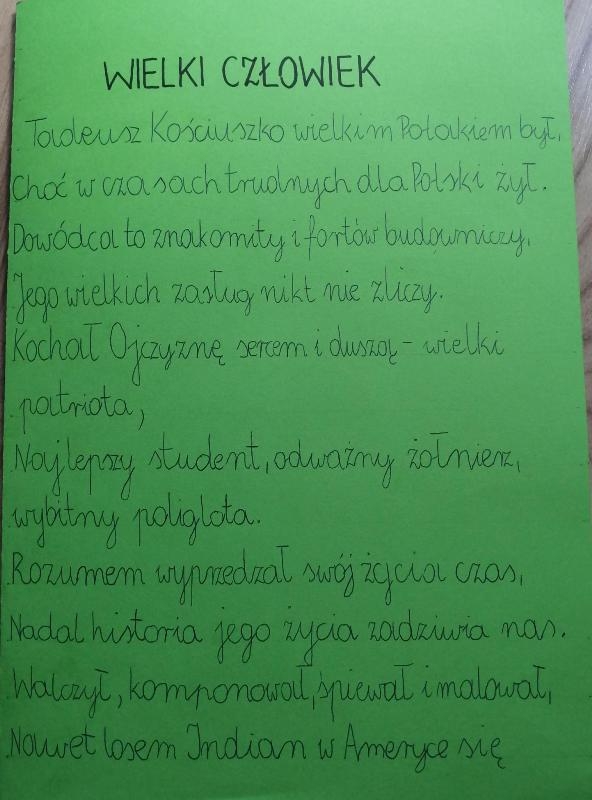 WIELKI CZŁOWIEK
Tadeusz Kościuszko wielkim Polakiem był,
Choć w czasach trudnych dla Polski żył.
Dowódca to znakomity i fortów budowniczy,
Jego wielkich zasług nikt nie zliczy.
Kochał Ojczyznę sercem i duszą - wielki
patriota,
Najlepszy student, odważny żołnierz,
wybitny poliglota.
Rozumem wyprzedzał swój życia czas,
Nadal historia jego życia zadziwia nas.
Walczył, komponował, śpiewał i malował,
Nawet losem Indian w Ameryce się